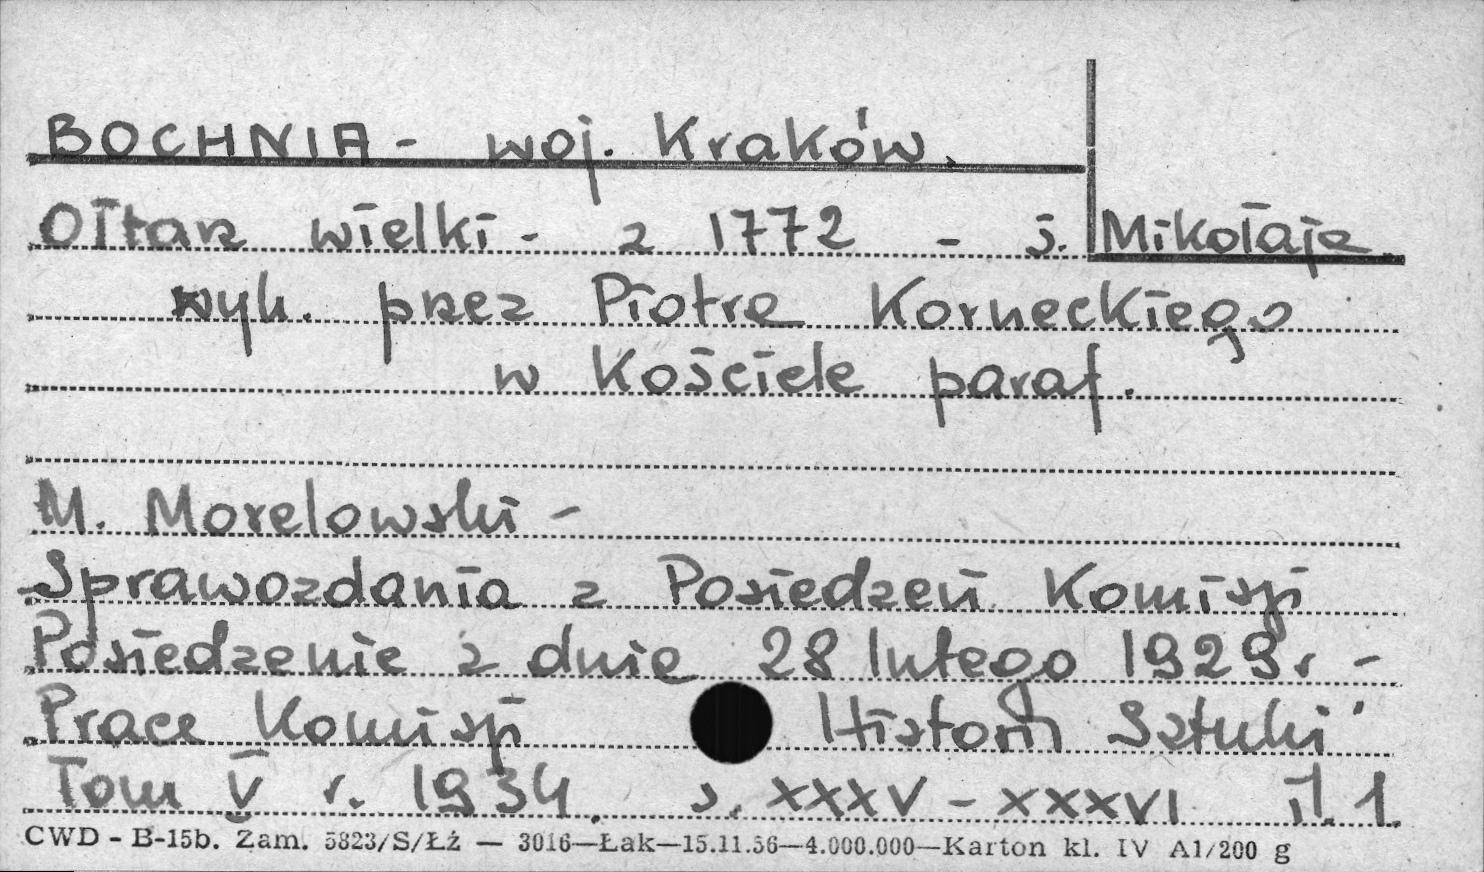 BOCHNIA - woj. Kraków.
Ołtarz wielki - z 1772 - ś. Mikołaja
wyk. przez Piotra Korneckiego
w Kościele paraf.
M. Morelowski -
Sprawozdania z Posiedzeń Komisji
Posiedzenie z dnia 28 lutego 1929 r -
Prace Komisji Historii Sztuki
Tom V r. 1934. s. XXXV - XXXVI il. 1.
CWD - B-15b. Zam. 5823/S/Łź — 3016—Łak—15.11.56—4.000.000—Karton kl. IV A1/200 g